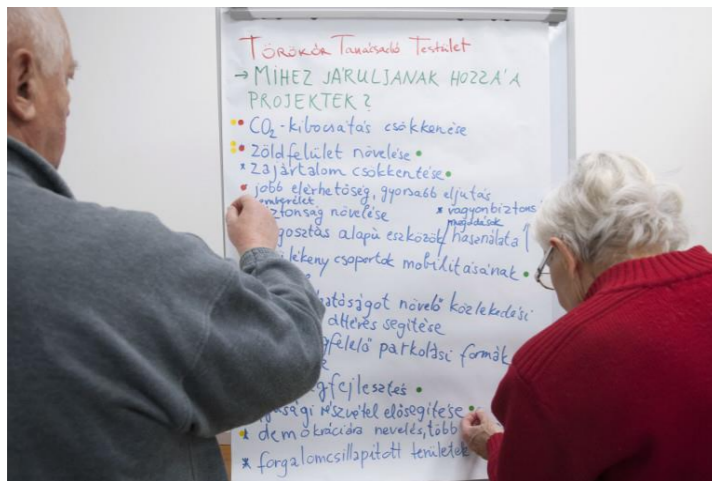 TÖRÖKŐR TANÁCSADÓ TESTÜLET
→ MIHEZ JÁRULJANAK HOZZÁ A
PROJEKTEK?
CO₂-kibocsátás csökkenése
zöldfelület növelése
* zajártalom csökkentése
jobb elérhetőség, gyorsabb eljutás
növelése
* vagyonbiztons
megoldások
alapú eszközök használata
csoportok mobilitásának
növelő közlekedési
segítése
parkolási formák
részvétel elősegítése
* demokráciára nevelés, több
* forgalomcsillapított területek